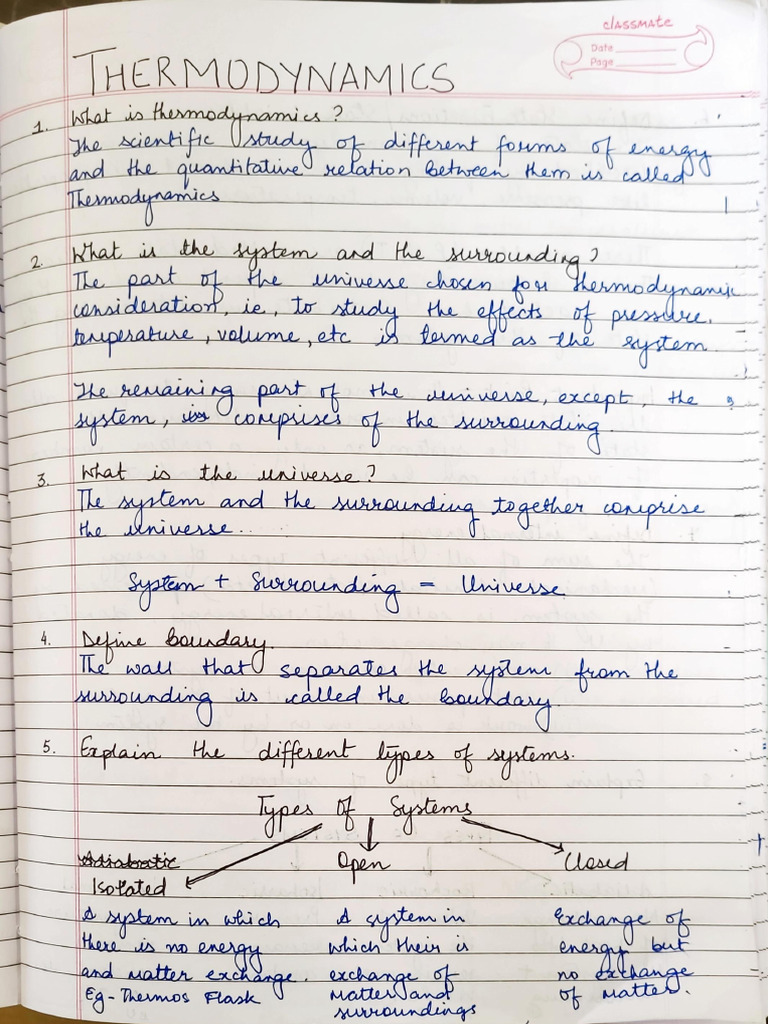 classmate
Date
Page
THERMODYNAMICS
1. What is thermodynamics?
The scientific study of different forms of energy
and the quantitative relation between them is called
Thermodynamics
2. What is the system and the surrounding?
The part of the universe chosen for thermodynamic
consideration, ie, to study the effects of pressure,
temperature, volume, etc is termed as the system
The remaining part of the universe, except, the
system, is comprises of the surrounding.
3. What is the universe?
The system and the surrounding together comprise
the universe..
System + Surrounding = Universe
4. Define boundary.
The wall that separates the system from the
surrounding is called the boundary.
5. Explain the different types of systems.
Types Of Systems
Adiabatic
Isolated
A system in which
there is no energy
and matter exchange.
Eg - Thermos Flask
Open
A system in
which their is
exchange of
matter and
surroundings
Closed
Exchange of
energy but
no exchange
of matter.